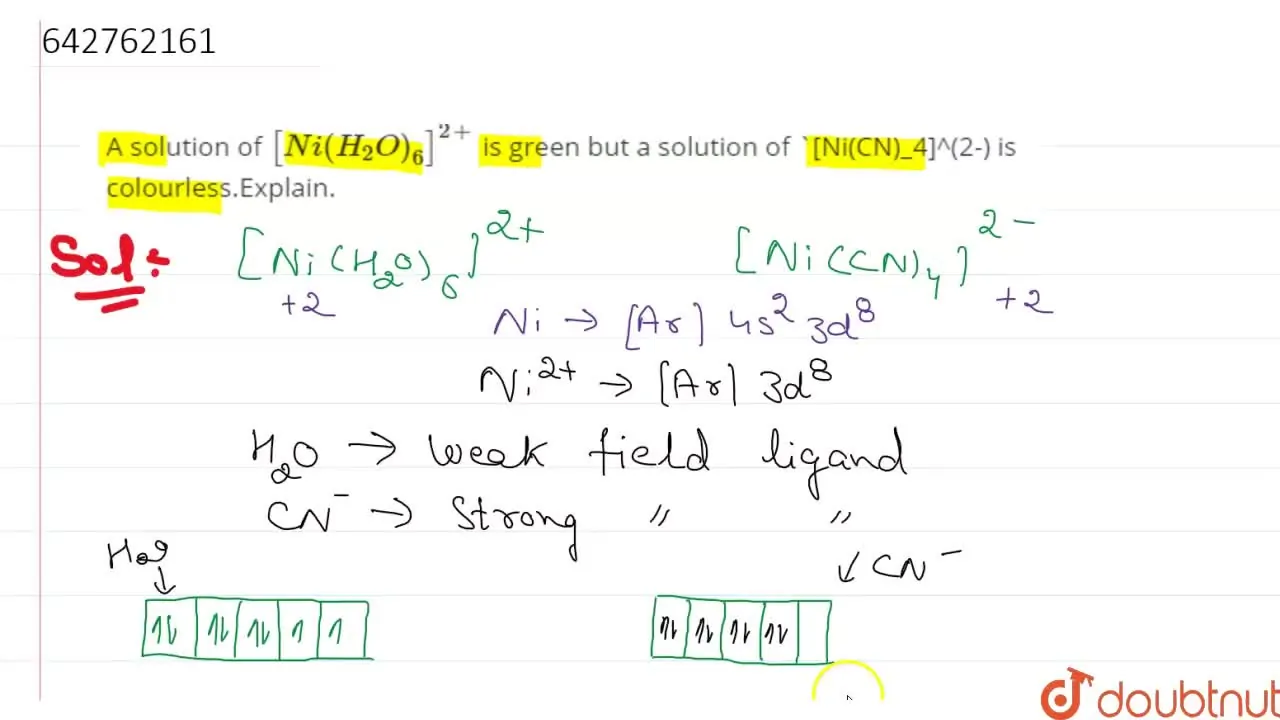 642762161
A solution of [Ni(H₂O)₆]²⁺ is green but a solution of `[Ni(CN)_4]^(2-) is
colourless.Explain.
Sol:
[Ni(H₂O)₆]²⁺ [Ni(CN)₄]²⁻
+2 +2
Ni → [Ar] 4s² 3d⁸
Ni²⁺ → [Ar] 3d⁸
H₂O → weak field ligand
CN⁻ → Strong " "
H₂O ↓ ↓ CN⁻
⥮ ⥮ ⥮ ↿ ↿ ⥮ ⥮ ⥮ ⥮
doubtnut